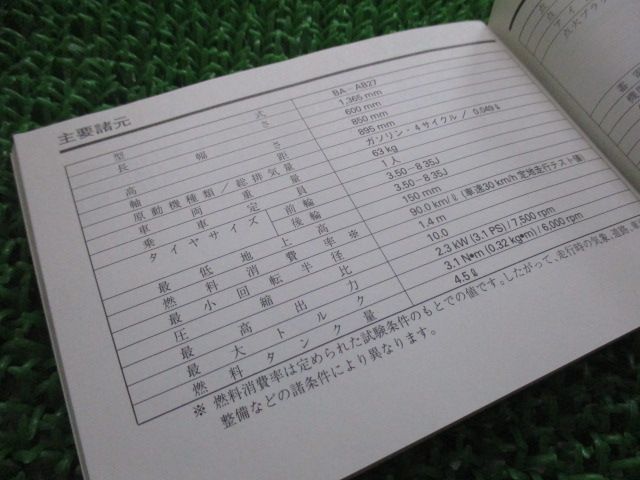 主要諸元
型式 BA-AB27
長さ 1,365 mm
幅 600 mm
高さ 850 mm
軸距 895 mm
原動機種類/総排気量 ガソリン・4サイクル / 0.049ℓ
車両重量 63 kg
乗車定員 1人
タイヤサイズ 前輪 3.50-8.35J
後輪 3.50-8.35J
最低地上高 150 mm
燃料消費率※ 90.0 km/ℓ (車速30 km/h 定地走行テスト値)
最小回転半径 1.4 m
圧縮比 10.0
最高出力 2.3 kW (3.1 PS) / 7,500 rpm
最大トルク 3.1 N•m (0.32 kg•m) / 6,000 rpm
燃料タンク量 4.5ℓ
※ 燃料消費率は定められた試験条件のもとでの値です。したがって、走行時の気象、道路、車
整備などの諸条件により異なります。